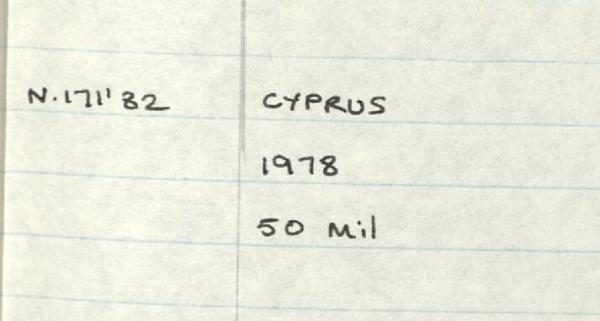 N.171'82 CYPRUS
1978
50 Mil